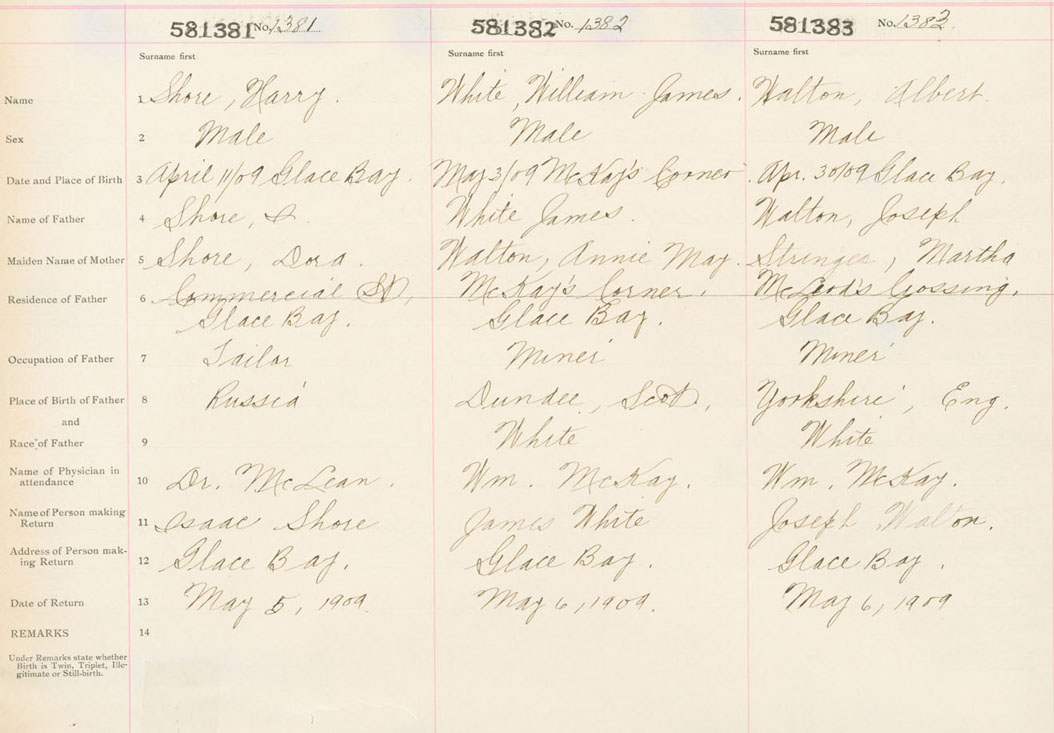 581381 No. 1381 581382 No. 1382 581383 No. 1383
Surname first Surname first Surname first
Name 1 Shore, Harry. White, William James. Walton, Albert.
Sex 2 Male Male Male
Date and Place of Birth 3 April 11/09 Glace Bay. May 3/09 McKay's Corner Apr. 30/09 Glace Bay.
Name of Father 4 Shore, I. White James. Walton, Joseph
Maiden Name of Mother 5 Shore, Dora. Walton, Annie May. Stringer, Martha
Residence of Father 6 Commercial St, McKay's Corner, McLeod's Crossing,
Glace Bay. Glace Bay. Glace Bay.
Occupation of Father 7 Tailor Miner Miner
Place of Birth of Father 8 Russia Dundee, Scot, Yorkshire, Eng.
and
Race of Father 9 White White
Name of Physician in
attendance 10 Dr. McLean. Wm. McKay. Wm. McKay.
Name of Person making
Return 11 Isaac Shore James White Joseph Walton.
Address of Person mak-
ing Return 12 Glace Bay. Glace Bay. Glace Bay.
Date of Return 13 May 5, 1909. May 6, 1909. May 6, 1909
REMARKS 14
Under Remarks state whether
Birth is Twin, Triplet, Ille-
gitimate or Still-birth.